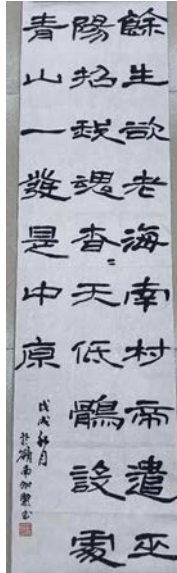 餘生欲老海南村帝遣巫
陽招我魂杳〻天低鶻設處
青山一發是中原
戊戌秋月
於嶺南書